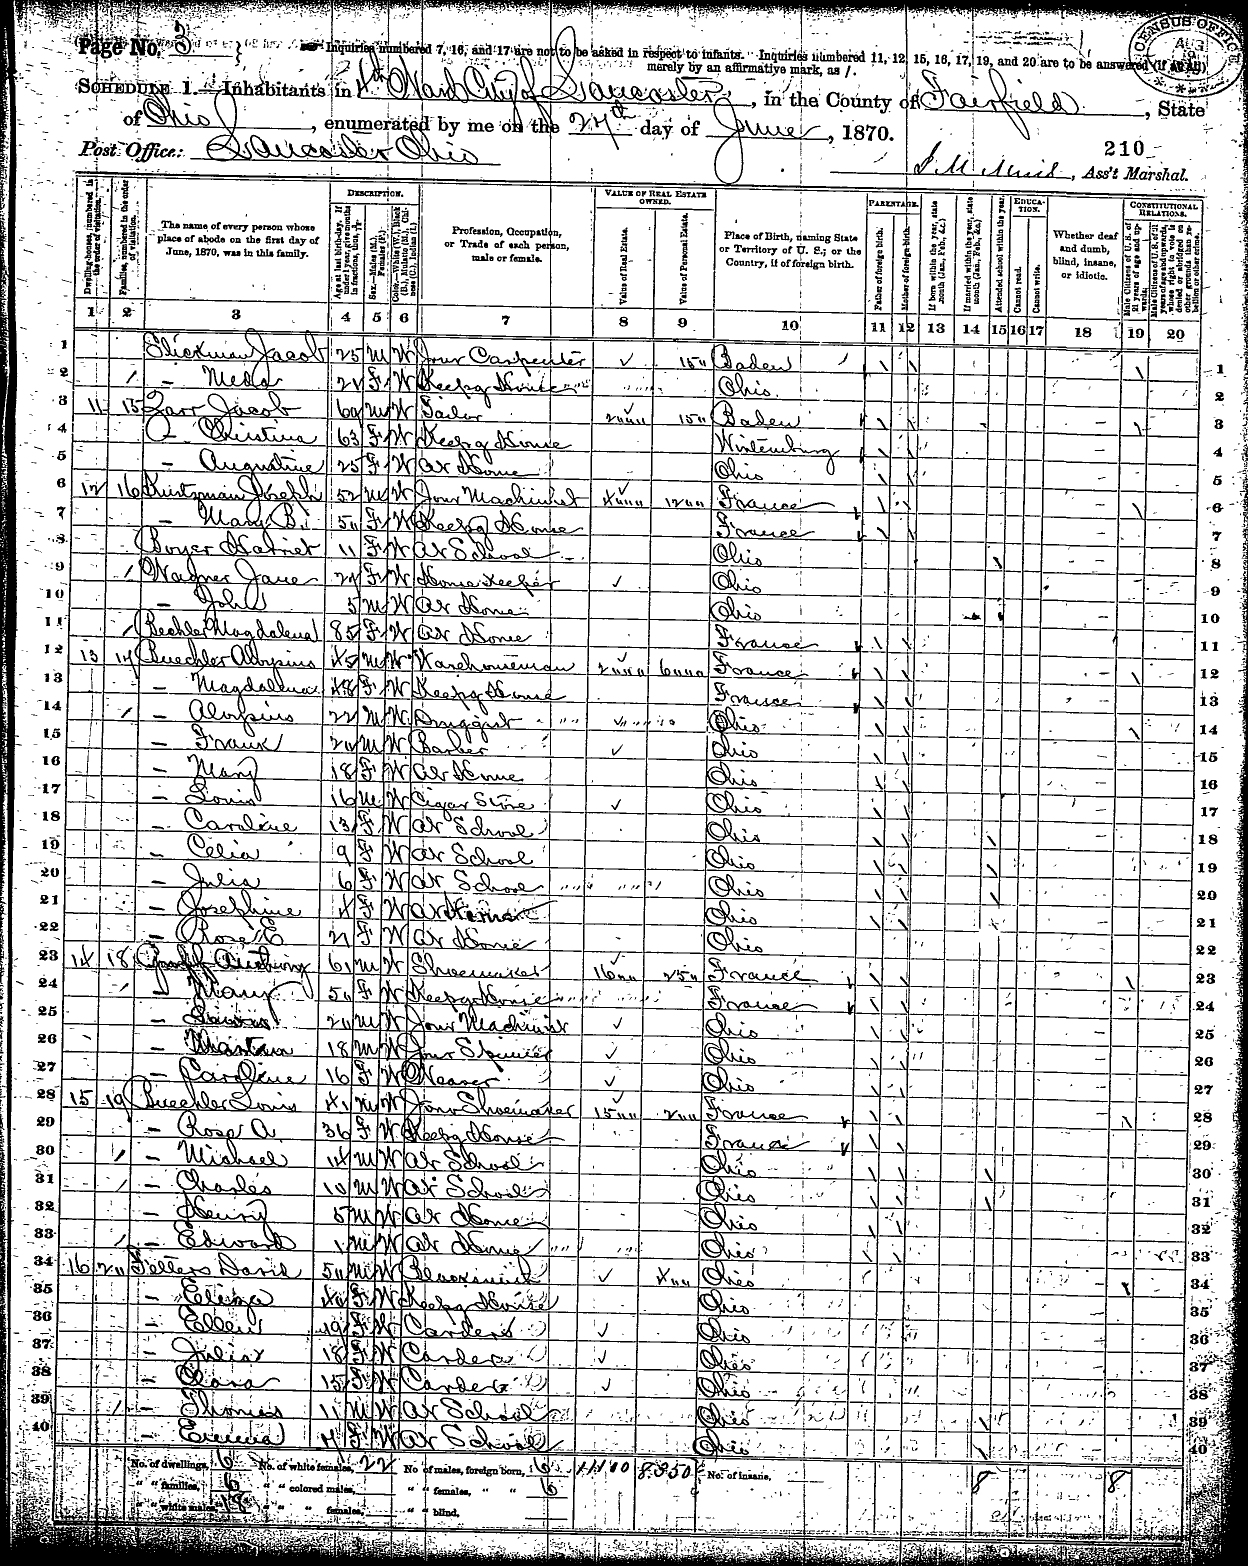 Page No. 3
Inquiries numbered 7, 16, and 17 are not to be asked in respect to infants. Inquiries numbered 11, 12, 15, 16, 17, 19, and 20 are to be answered (if at all)
merely by an affirmative mark, as /.
CENSUS OFFICE AUG
SCHEDULE 1.—Inhabitants in 4th Ward City of Lancaster, in the County of Fairfield, State
of Ohio, enumerated by me on the 27th day of June, 1870.
Post Office: Lancaster Ohio
210
Ass't Marshal.
Dwelling-houses, numbered in the order of visitation.
Families, numbered in the order of visitation.
The name of every person whose place of abode on the first day of June, 1870, was in this family.
DESCRIPTION.
Sex.—Males (M.), Females (F.)
Profession, Occupation, or Trade of each person, male or female.
VALUE OF REAL ESTATE OWNED.
Value of Real Estate.
Value of Personal Estate.
Place of Birth, naming State or Territory of U. S.; or the Country, if of foreign birth.
PARENTAGE.
Father of foreign birth.
Mother of foreign birth.
If born within the year, state month (Jan., Feb., &c.)
If married within the year, state month (Jan., Feb., &c.)
Attended school within the year.
EDUCATION.
Cannot read.
Cannot write.
Whether deaf and dumb, blind, insane, or idiotic.
CONSTITUTIONAL RELATIONS.
Male Citizens of U. S. of 21 years of age and upwards.
1 2 3 4 5 6 7 8 9 10 11 12 13 14 15 16 17 18 19 20
1 Jacob 25 M W Jour Carpenter 150 Baden 1
2 — 24 F W Keepg House Ohio 2
3 11 15 Zarr Jacob 60 M W Tailor 2000 150 Baden 3
4 — Christina 63 F W Keepg House Wirtemburg 4
5 — Augustine 25 F W At Home Ohio 5
6 12 16 Kuntzman Joseph 52 M W Jour Machinist 4000 1200 France 6
7 — Mary B. 50 F W Keepg House France 7
8 Boyer Harriet 11 F W At School Ohio 8
9 Wagner Jane 24 F W House Keeper Ohio 9
10 — John 5 M W At Home Ohio 10
11 Bechler Magdalena 85 F W At Home France 11
12 13 17 Buechler Aloysius 45 M W Warehouseman 2000 6000 France 12
13 — Magdalena 48 F W Keepg House France 13
14 — Aloysius 22 M W Druggist Ohio 14
15 — Frank 20 M W Barber Ohio 15
16 — Mary 18 F W At Home Ohio 16
17 — Louis 16 M W Cigar Store Ohio 17
18 — Caroline 13 F W At School Ohio 18
19 — Celia 9 F W At School Ohio 19
20 — Julia 6 F W At School Ohio 20
21 — Josephine 4 F W At Home Ohio 21
22 — Rose E 2 F W At Home Ohio 22
23 14 18 Anthony 61 M W Shoemaker 1600 250 France 23
24 — Mary 50 F W Keepg House France 24
25 — 20 M W Jour Machinist Ohio 25
26 — 18 M W Jour Spinner Ohio 26
27 — Caroline 16 F W Weaver Ohio 27
28 15 19 Buechler Louis 41 M W Jour Shoemaker 1500 200 France 28
29 — Rose A. 36 F W Keepg House France 29
30 — Michael 14 M W At School Ohio 30
31 — Charles 10 M W At School Ohio 31
32 — Henry 5 M W At Home Ohio 32
33 — Edward 1 M W At Home Ohio 33
34 16 20 Fetters David 50 M W Blacksmith 400 Ohio 34
35 — Eliza 40 F W Keepg House Ohio 35
36 — Ellen 19 F W Carder Ohio 36
37 — Julia 18 F W Carder Ohio 37
38 — Clara 15 F W Carder Ohio 38
39 — Thomas 11 M W At School Ohio 39
40 — Emma F W At School Ohio 40
No. of dwellings, 6 No. of white females, 22 No. of males, foreign born, 6 11100 8350 No. of insane, 8 8
" " families, 6 " " colored males, " " females, " " 6
" " white males, 18 " " " females, " " blind,